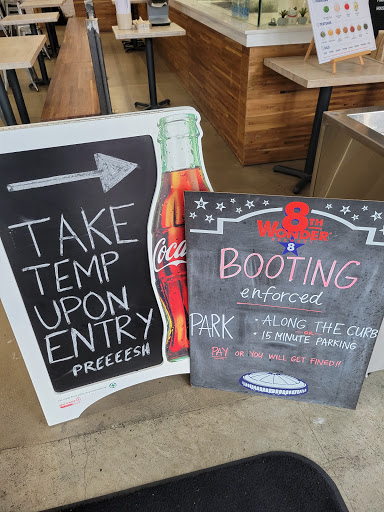 TAKE
TEMP
UPON
ENTRY
PREEEESH
Coca
8TH
WONDER
8
BOOTING
enforced
PARK • ALONG THE CURB
OR
• 15 MINUTE PARKING
PAY OR YOU WILL GET FINED!!